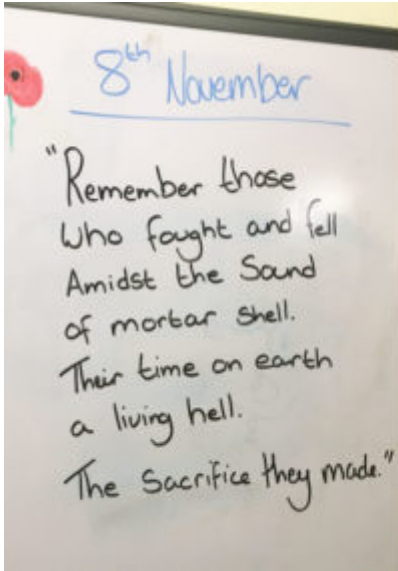 8th November
"Remember those
who fought and fell
Amidst the Sound
of mortar shell.
Their time on earth
a living hell.
The Sacrifice they made."